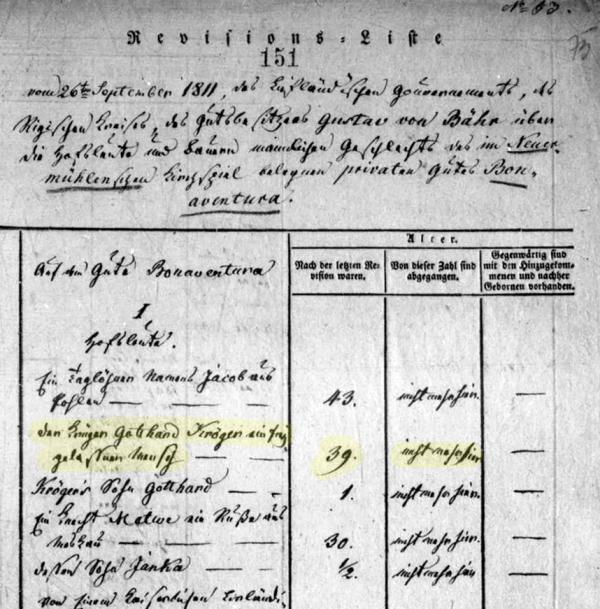 No 63.
75
Revisions-Liste
151
vom 26ten September 1811, des Liefländischen Gouvernements, des
Rigischen Kreises, des Gutsbesitzers Gustav von Bähr über
die Hofsleute und Bauern männlichen Geschlechts des im Neuer-
mühlenschen Kirchspiel belegnen privaten Gutes Bon-
aventura.
Alter.
Auf dem Gute Bonaventura
Nach der letzten Re-
vision waren.
Von dieser Zahl sind
abgegangen.
Gegenwärtig sind
mit den Hinzugekom-
menen und nachher
Gebornen vorhanden.
I
Hofsleute.
Ein Taglöhner Namens Jacob aus
Pohlen — — — 43. nicht mehr hier. —
Der Krüger Gotthard Kröger ein frey
gelassener Mensch — — 39. nicht mehr hier —
Krögers Sohn Gotthard — — 1. nicht mehr hier. —
Ein Knecht Matwe ein Russe aus
Moskau — — — 30. nicht mehr hier. —
dessen Sohn Janka — — 1/2. nicht mehr hier —
von einem